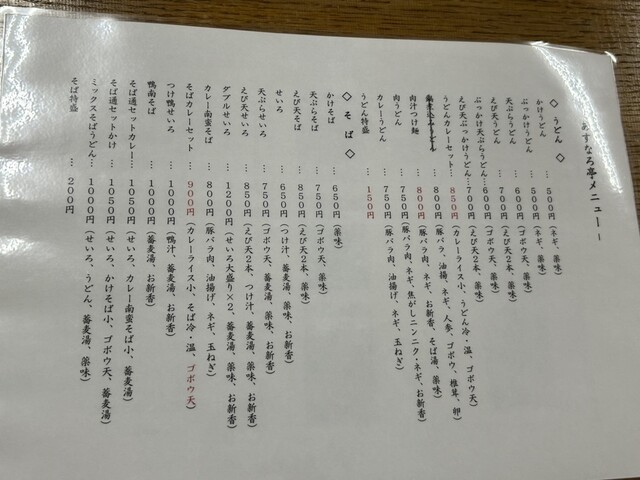 あすなろ亭メニュー
◇ うどん ◇
かけうどん … 500円（ネギ、薬味）
ぶっかけうどん … 500円（ネギ、薬味）
天ぷらうどん … 600円（ゴボウ天、薬味）
えび天うどん … 700円（えび天2本、薬味）
ぶっかけ天ぷらうどん … 600円（ゴボウ天、薬味）
えび天ぶっかけうどん … 700円（えび天2本、薬味）
うどんカレーセット … 850円（カレーライス小、うどん冷・温、ゴボウ天）
… 800円（豚バラ肉、油揚、ネギ、人参、ゴボウ、椎茸、卵）
肉汁つけ麺 … 800円（豚バラ肉、ネギ、お新香、そば湯、薬味）
肉うどん … 750円（豚バラ肉、ネギ、焦がしニンニク・ネギ、お新香）
カレーうどん … 750円（豚バラ肉、油揚げ、ネギ、玉ねぎ）
うどん特盛 … 150円
◇ そば ◇
かけそば … 650円（薬味）
天ぷらそば … 750円（ゴボウ天、薬味）
えび天そば … 850円（えび天2本、薬味）
せいろ … 650円（つけ汁、蕎麦湯、薬味、お新香）
天ぷらせいろ … 750円（ゴボウ天、蕎麦湯、薬味、お新香）
えび天せいろ … 850円（えび天2本、つけ汁、蕎麦湯、薬味、お新香）
ダブルせいろ … 1200円（せいろ大盛り×2、蕎麦湯、薬味、お新香）
カレー南蛮そば … 800円（豚バラ肉、油揚げ、ネギ、玉ねぎ）
そばカレーセット … 900円（カレーライス小、そば冷・温、ゴボウ天）
つけ鴨せいろ … 1000円（鴨汁、蕎麦湯、お新香）
鴨南そば … 1000円（蕎麦湯、お新香）
そば通セットカレー … 1050円（せいろ、カレー南蛮そば小、蕎麦湯）
そば通セットかけ … 1050円（せいろ、かけそば小、ゴボウ天、蕎麦湯）
ミックスそばうどん … 1000円（せいろ、うどん、蕎麦湯、薬味）
そば特盛 … 200円